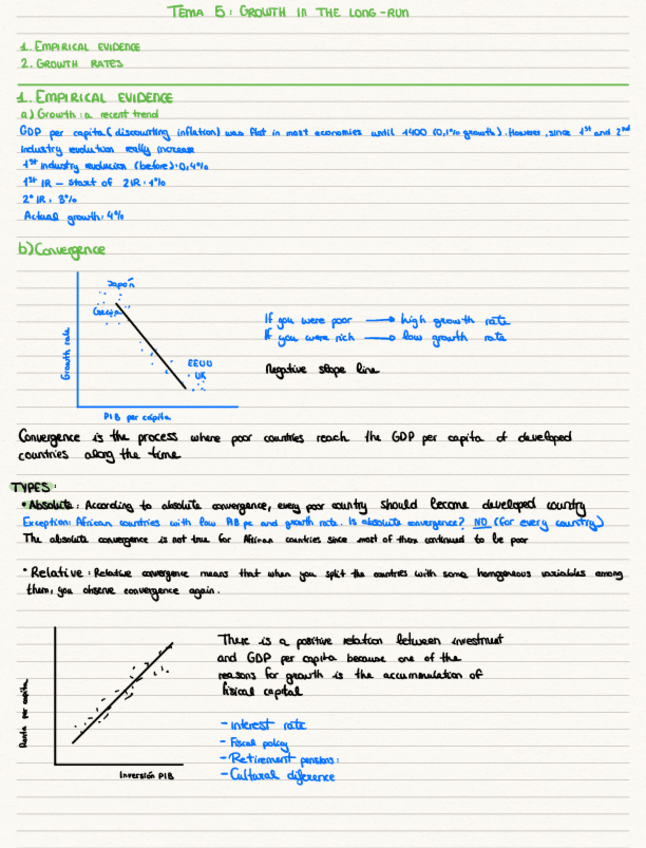 TEMA 5: GROWTH IN THE LONG-RUN
1. EMPIRICAL EVIDENCE
2. GROWTH RATES
1. EMPIRICAL EVIDENCE
a) Growth: a recent trend
GDP per capita (discounting inflation) was flat in most economies until 1400 (0,1% growth). However, since 1st and 2nd
industry evolution really increase
1st industry evolucion (before): 0,4%
1st IR - start of 2IR: 1%
2º IR: 3%
Actual growth: 4%
b) Convergence
Japón
Grecia
EEUU
UK
Growth rate
PIB per cápita
If you were poor → high growth rate
If you were rich → low growth rate
Negative slope line
Convergence is the process where poor countries reach the GDP per capita of developed
countries along the time
TYPES:
• Absolute: According to absolute convergence, every poor country should become developed country
Exception: African countries with low PIB pc and growth rate. Is absolute convergence? NO (for every country)
The absolute convergence is not true for African countries since most of them continued to be poor
• Relative: Relative convergence means that when you split the countries with some homogeneous variables among
them, you observe convergence again.
Renta per capita
Inversión PIB
There is a positive relation between investment
and GDP per capita because one of the
reasons for growth is the accumulation of
fisical capital
- interest rate
- Fiscal policy
- Retirement pensions:
- Cultural diference